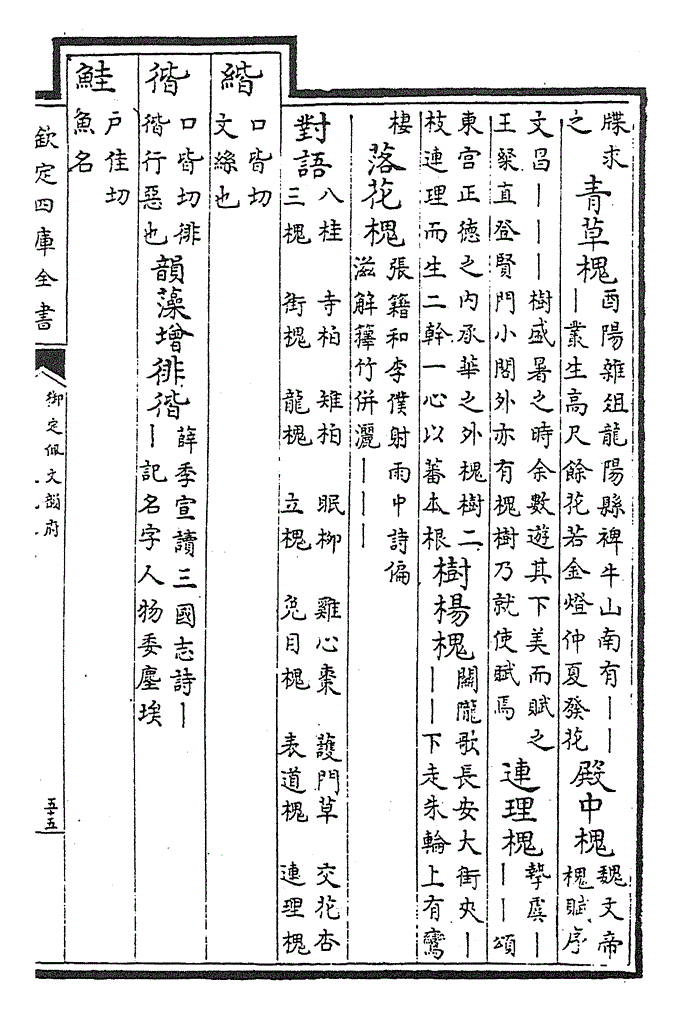 牒求
之
青草槐
酉陽雜俎龍陽縣裨牛山南有｜｜
｜叢生高尺餘花若金燈仲夏發花
殿中槐
魏文帝
槐賦序
文昌｜｜｜樹盛暑之時余數遊其下美而賦之
王粲直登賢門小閣外亦有槐樹乃就使賦焉
連理槐
摯虞｜
｜｜頌
東宮正德之内承華之外槐樹二
枝連理而生二幹一心以蕃本根
樹楊槐
關隴歌長安大街夾｜
｜｜下走朱輪上有鸞
棲
落花槐
張籍和李僕射雨中詩偏
滋解籜竹併灑｜｜｜
對語
八桂 寺柏 雉柏 眠柳 雞心棗 護門草 交花杏
三槐 街槐 龍槐 立槐 兎目槐 表道槐 連理槐
口皆切
文絲也
口皆切徘
行惡也
韻藻增
徘
薛季宣讀三國志詩｜
｜記名字人物委塵埃
鮭
户佳切
魚名
欽定四庫全書
御定佩文韻府
五十五